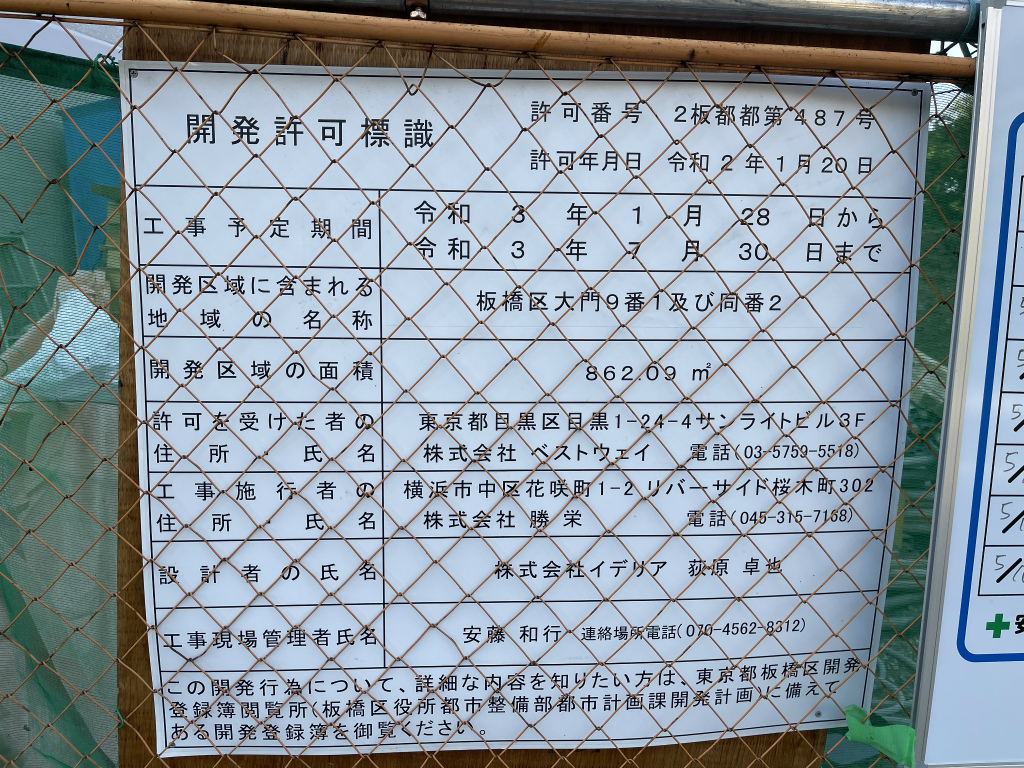 開発許可標識
許可番号 2板都都第487号
許可年月日 令和2年1月20日
工事予定期間
令和 3 年 1 月 28 日から
令和 3 年 7 月 30 日まで
開発区域に含まれる
地域の名称
板橋区大門9番1及び同番2
開発区域の面積
862.09 ㎡
許可を受けた者の
住所・氏名
東京都目黒区目黒1-24-4サンライトビル3F
株式会社 ベストウェイ 電話(03-5759-5518)
工事施行者の
住所・氏名
横浜市中区花咲町1-2 リバーサイド桜木町302
株式会社 勝栄 電話(045-315-7168)
設計者の氏名
株式会社イデリア 荻原 卓也
工事現場管理者氏名
安藤 和行 連絡場所電話(070-4562-8312)
この開発行為について、詳細な内容を知りたい方は、東京都板橋区開発
登録簿閲覧所(板橋区役所都市整備部都市計画課開発計画)に備えて
ある開発登録簿を御覧ください。